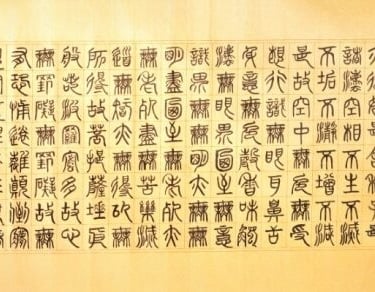 諸法空相不生不滅
不垢不淨不增不減
是故空中無色無受
想行識無眼耳鼻舌
身意無色聲香味觸
法無眼界乃至無意
識界無無明亦無無
明盡乃至無老死亦
無老死盡無苦集滅
道無智亦無得以無
所得故菩提薩埵依
般若波羅蜜多故心
無罣礙無罣礙故無
有恐怖遠離顛倒夢